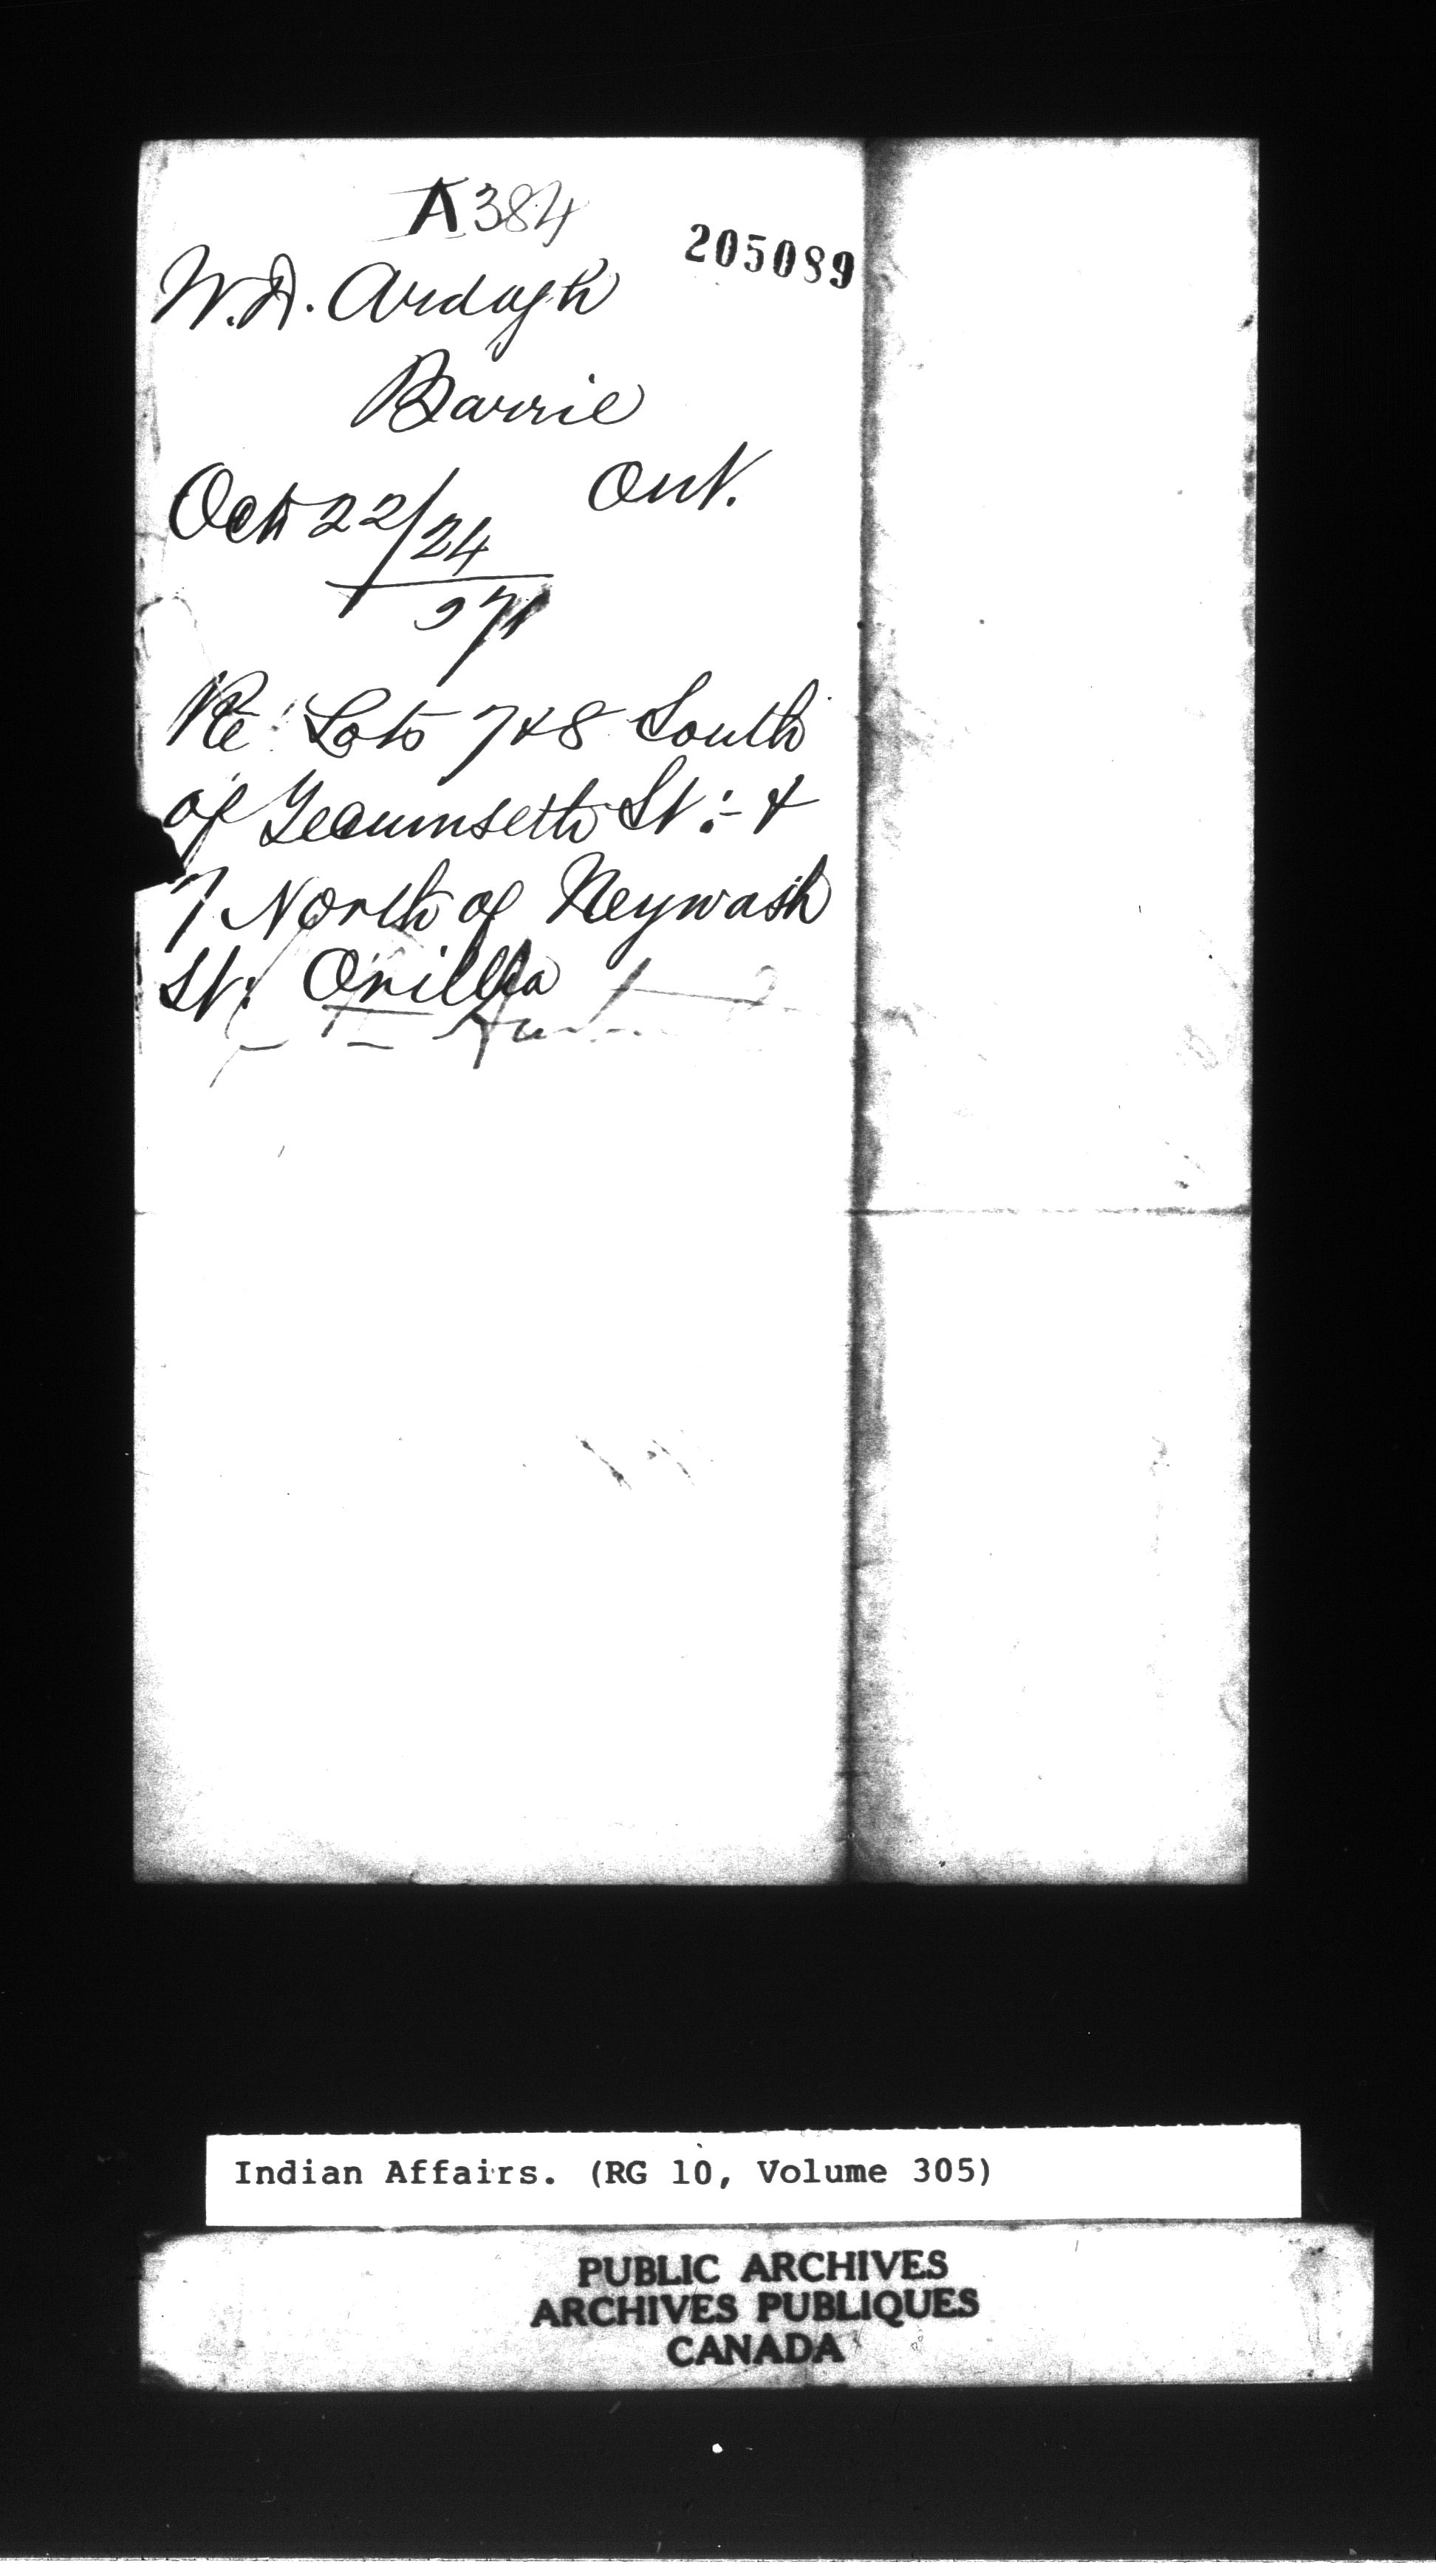 A384
205089
W.D. Ardagh
Barrie
Ont.
Oct 22/24
271
Re: Lots 7 & 8 South
of Tecumseth St:- &
7 North of Neywash
St: Orillia
Indian Affairs. (RG 10, Volume 305)
PUBLIC ARCHIVES
ARCHIVES PUBLIQUES
CANADA